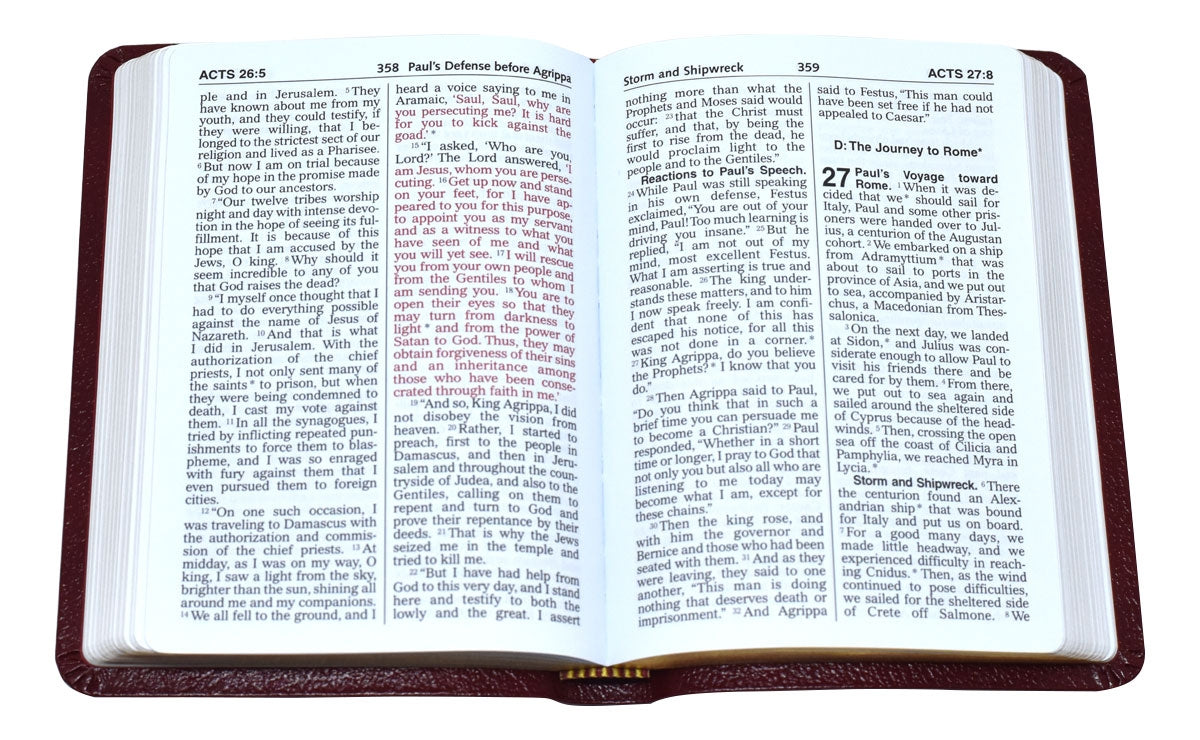 ACTS 26:5
358 Paul's Defense before Agrippa
ple and in Jerusalem. 5They
have known about me from my
youth, and they could testify, if
they were willing, that I be-
longed to the strictest sect of our
religion and lived as a Pharisee.
6But now I am on trial because
of my hope in the promise made
by God to our ancestors.
7“Our twelve tribes worship
night and day with intense devo-
tion in the hope of seeing its ful-
fillment. It is because of this
hope that I am accused by the
Jews, O king. 8Why should it
seem incredible to any of you
that God raises the dead?
9“I myself once thought that I
had to do everything possible
against the name of Jesus of
Nazareth. 10And that is what
I did in Jerusalem. With the
authorization of the chief
priests, I not only sent many of
the saints* to prison, but when
they were being condemned to
death, I cast my vote against
them. 11In all the synagogues, I
tried by inflicting repeated pun-
ishments to force them to blas-
pheme, and I was so enraged
with fury against them that I
even pursued them to foreign
cities.
12“On one such occasion, I
was traveling to Damascus with
the authorization and commis-
sion of the chief priests. 13At
midday, as I was on my way, O
king, I saw a light from the sky,
brighter than the sun, shining all
around me and my companions.
14We all fell to the ground, and I
heard a voice saying to me in
Aramaic, ‘Saul, Saul, why are
you persecuting me? It is hard
for you to kick against the
goad.’*
15“I asked, ‘Who are you,
Lord?’ The Lord answered, ‘I
am Jesus, whom you are perse-
cuting. 16Get up now and stand
on your feet, for I have ap-
peared to you for this purpose,
to appoint you as my servant
and as a witness to what you
have seen of me and what
you will yet see. 17I will rescue
you from your own people and
from the Gentiles to whom I
am sending you. 18You are to
open their eyes so that they
may turn from darkness to
light* and from the power of
Satan to God. Thus, they may
obtain forgiveness of their sins
and an inheritance among
those who have been conse-
crated through faith in me.’
19“And so, King Agrippa, I did
not disobey the vision from
heaven. 20Rather, I started to
preach, first to the people in
Damascus, and then in Jeru-
salem and throughout the coun-
tryside of Judea, and also to the
Gentiles, calling on them to
repent and turn to God and
prove their repentance by their
deeds. 21That is why the Jews
seized me in the temple and
tried to kill me.
22“But I have had help from
God to this very day, and I stand
here and testify to both the
lowly and the great. I assert
Storm and Shipwreck 359
ACTS 27:8
nothing more than what the
Prophets and Moses said would
occur: 23that the Christ must
suffer, and that, by being the
first to rise from the dead, he
would proclaim light to the
people and to the Gentiles.”
Reactions to Paul's Speech.
24While Paul was still speaking
in his own defense, Festus
exclaimed, “You are out of your
mind, Paul! Too much learning is
driving you insane.” 25But he
replied, “I am not out of my
mind, most excellent Festus.
What I am asserting is true and
reasonable. 26The king under-
stands these matters, and to him
I now speak freely. I am confi-
dent that none of this has
escaped his notice, for all this
was not done in a corner.*
27King Agrippa, do you believe
the Prophets?* I know that you
do.”
28Then Agrippa said to Paul,
“Do you think that in such a
brief time you can persuade me
to become a Christian?” 29Paul
responded, “Whether in a short
time or longer, I pray to God that
not only you but also all who are
listening to me today may
become what I am, except for
these chains.”
30Then the king rose, and
with him the governor and
Bernice and those who had been
seated with them. 31And as they
were leaving, they said to one
another, “This man is doing
nothing that deserves death or
imprisonment.” 32And Agrippa
said to Festus, “This man could
have been set free if he had not
appealed to Caesar.”
D: The Journey to Rome*
27 Paul's Voyage toward
Rome. 1When it was de-
cided that we* should sail for
Italy, Paul and some other pris-
oners were handed over to Jul-
ius, a centurion of the Augustan
cohort. 2We embarked on a ship
from Adramyttium* that was
about to sail to ports in the
province of Asia, and we put out
to sea, accompanied by Aristar-
chus, a Macedonian from Thes-
salonica.
3On the next day, we landed
at Sidon,* and Julius was con-
siderate enough to allow Paul to
visit his friends there and be
cared for by them. 4From there,
we put out to sea again and
sailed around the sheltered side
of Cyprus because of the head-
winds. 5Then, crossing the open
sea off the coast of Cilicia and
Pamphylia, we reached Myra in
Lycia.*
Storm and Shipwreck. 6There
the centurion found an Alex-
andrian ship* that was bound
for Italy and put us on board.
7For a good many days, we
made little headway, and we
experienced difficulty in reach-
ing Cnidus.* Then, as the wind
continued to pose difficulties,
we sailed for the sheltered side
of Crete off Salmone. 8We